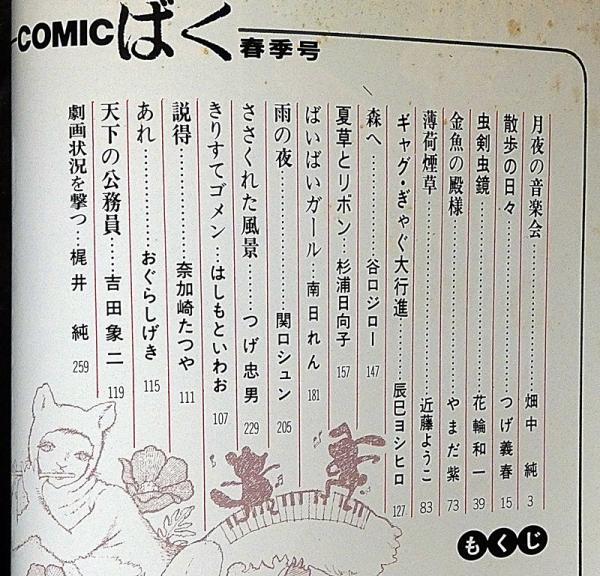 COMICばく 春季号
もくじ
月夜の音楽会……畑中 純 3
散歩の日々……つげ義春 15
虫剣虫鏡……花輪和一 39
金魚の殿様……やまだ紫 73
薄荷煙草……近藤ようこ 83
ギャグ・ぎゃぐ大行進……辰巳ヨシヒロ 127
森へ……谷口ジロー 147
夏草とリボン…杉浦日向子 157
ばいばいガール…南日れん 181
雨の夜……関口シュン 205
ささくれた風景……つげ忠男 229
きりすてゴメン…はしもといわお 107
説得……奈加崎たつや 111
あれ……おぐらしげき 115
天下の公務員……吉田象二 119
劇画状況を撃つ…梶井 純 259